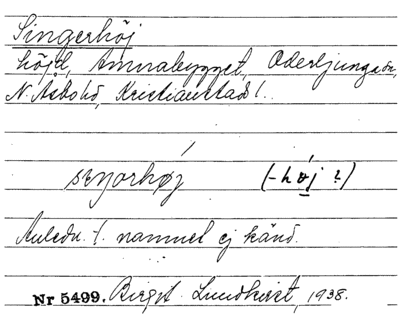 Singerhöj
höjd, Amnabygget, Oderljunga sn,
N. Åsbo hd, Kristianstads l.
seŋorhøj (-høj ?)
Anledn. t. namnet ej känd.
Nr 5499. Birgit Lundkvist, 1938.